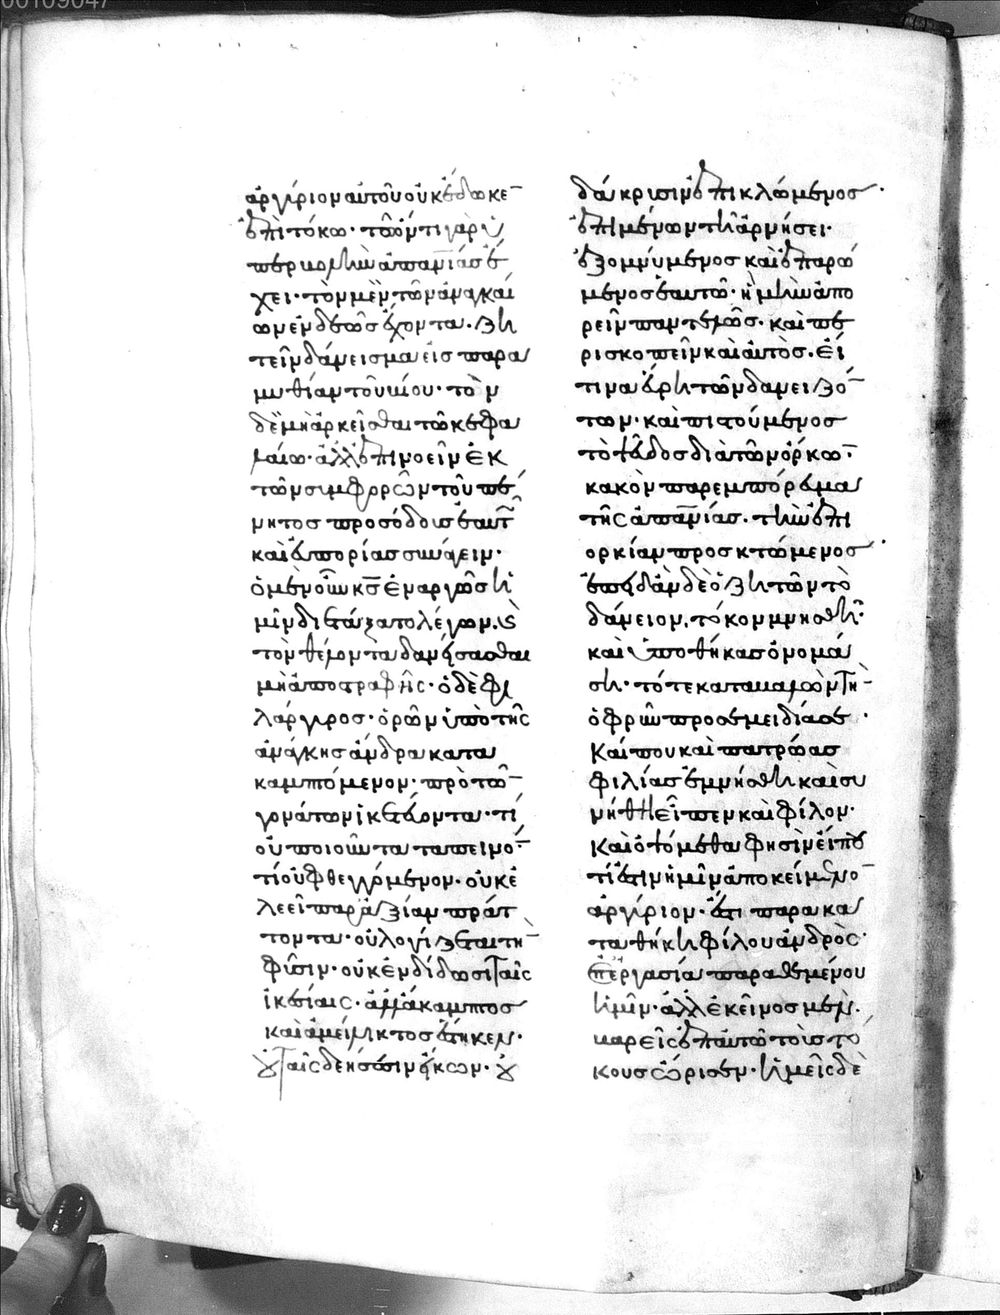 ἀργύριον αὐτοῦ οὐκ ἔδωκεν
ἐπὶ τόκω· τῶ ὄντι γὰρ ὑ
περβολὴν ἀπανίας ἔ
χει· τὸν μὲν τῶν ἀναγκαί
ων ἐνδεῶς ἔχοντα· ζη
τεῖν δάνεισμα εἰς παρα
μυθίαν τοῦ βίου· τὸν
δὲ μὴ ἀρκεῖσθαι τῶ κεφα
λαίω· ἀλλ' ἐπινοεῖν ἐκ
τῶν συμφορῶν τοῦ πέ
νητος προσόδους ἑαυτῶ
καὶ εὐπορίας συνάγειν·
ὁ μὲν οὖν κς ἐναργῶς ἡ
μῖν διετάξατο λέγων· καὶ
τὸν θέλοντα δανείσασθαι
μὴ ἀποστραφῆς· ὁ δὲ φι
λάργυρος· ὁρῶν ὑπὸ τῆς
ἀνάγκης ἄνδρα κατα
καμπτόμενον· πρὸ τῶν
γονάτων ἱκετεύοντα· τί
οὐ ποιοῦντα ταπεινόν·
τί οὐ φθεγγόμενον· οὐκ ἐ
λεεῖ παρ' ἀξίαν πράτ
τοντα· οὐ λογίζεται τὴν
φύσιν· οὐκ ἐνδίδωσι ταῖς
ἱκεσίαις· ἀλλ' ἄκαμπτος
καὶ ἀμείλικτος ἕστηκεν·
οὐ ταῖς δεήσεσιν εἴκων· οὐ
δάκρυσιν ἐπικλώμενος·
ἐπιμένων τῆ ἀρνήσει·
ἐξομνύμενος καὶ ἐπαρώ
μενος ἑαυτῶ· ἦ μὴν ἀπο
ρεῖν παντελῶς· καὶ πε
ρισκοπεῖν καὶ αὐτὸς· εἴ
τινα εὕρη τῶν δανειζόν
των· καὶ πιστούμενος
τὸ ψεῦδος διὰ τῶν ὅρκων·
κακὸν παρεμπόρευμα
τῆς ἀπανίας· τὴν ἐπι
ορκίαν προσκτώμενος·
ἐπειδὰν δὲ ὁ ζητῶν τὸ
δάνειον, τόκον μνησθῆ·
καὶ ὑποθήκας ὀνομά
ση· τότε καταβαλὼν τὴν
ὀφρῦν προσεμειδίασε·
καί που καὶ πατρώας
φιλίας ἐμνήσθη καὶ συ
νήθη εἶπεν καὶ φίλον·
καὶ ὀψόμεθα φησὶν εἴπου
τί ἐστιν ἡμῖν ἀποκείμενον
ἀργύριον· ἔστι παρακα
ταθήκη φίλου ἀνδρὸς·
ἐπ' ἐργασία παραθεμένου
ἡμῖν· ἀλλ' ἐκεῖνος μὲν·
βαρεῖς ἐπ' αὐτῶ τοὺς τό
κους ὥρισεν· ἡμεῖς δὲ